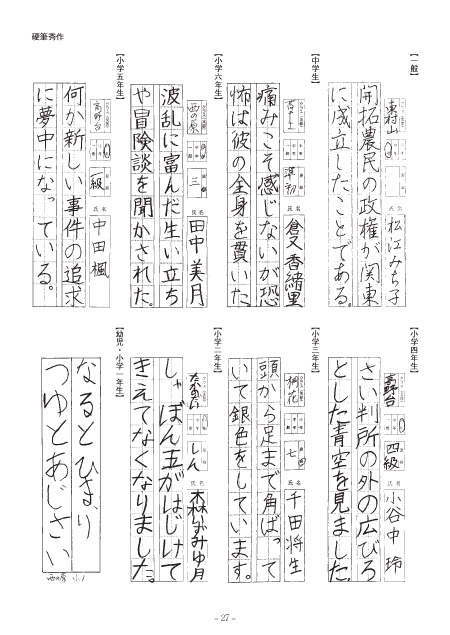 硬筆秀作
【一般】
東村山
氏名
松江みち子
開拓農民の政権が関東
に成立したことである。
【中学生】
準初
氏名
倉又香緒里
痛みこそ感じないが恐
怖は彼の全身を貫いた。
【小学六年生】
西の原
三
氏名
田中美月
波乱に富んだ生い立ち
や冒険談を聞かされた。
【小学五年生】
高野台
一級
氏名
中田楓
何か新しい事件の追求
に夢中になっている。
【小学四年生】
高野台
四級
氏名
小谷中玲
さい判所の外の広びろ
とした青空を見ました。
【小学三年生】
桐花
七
氏名
千田将生
頭から足まで角ばって
いて銀色をしています。
【小学二年生】
しん
氏名
森いずみゆ月
しゃぼん玉がはじけて
きえてなくなりました。
【幼児・小学一年生】
なるとひまり
つゆとあじさい
西の原 小1
- 27 -